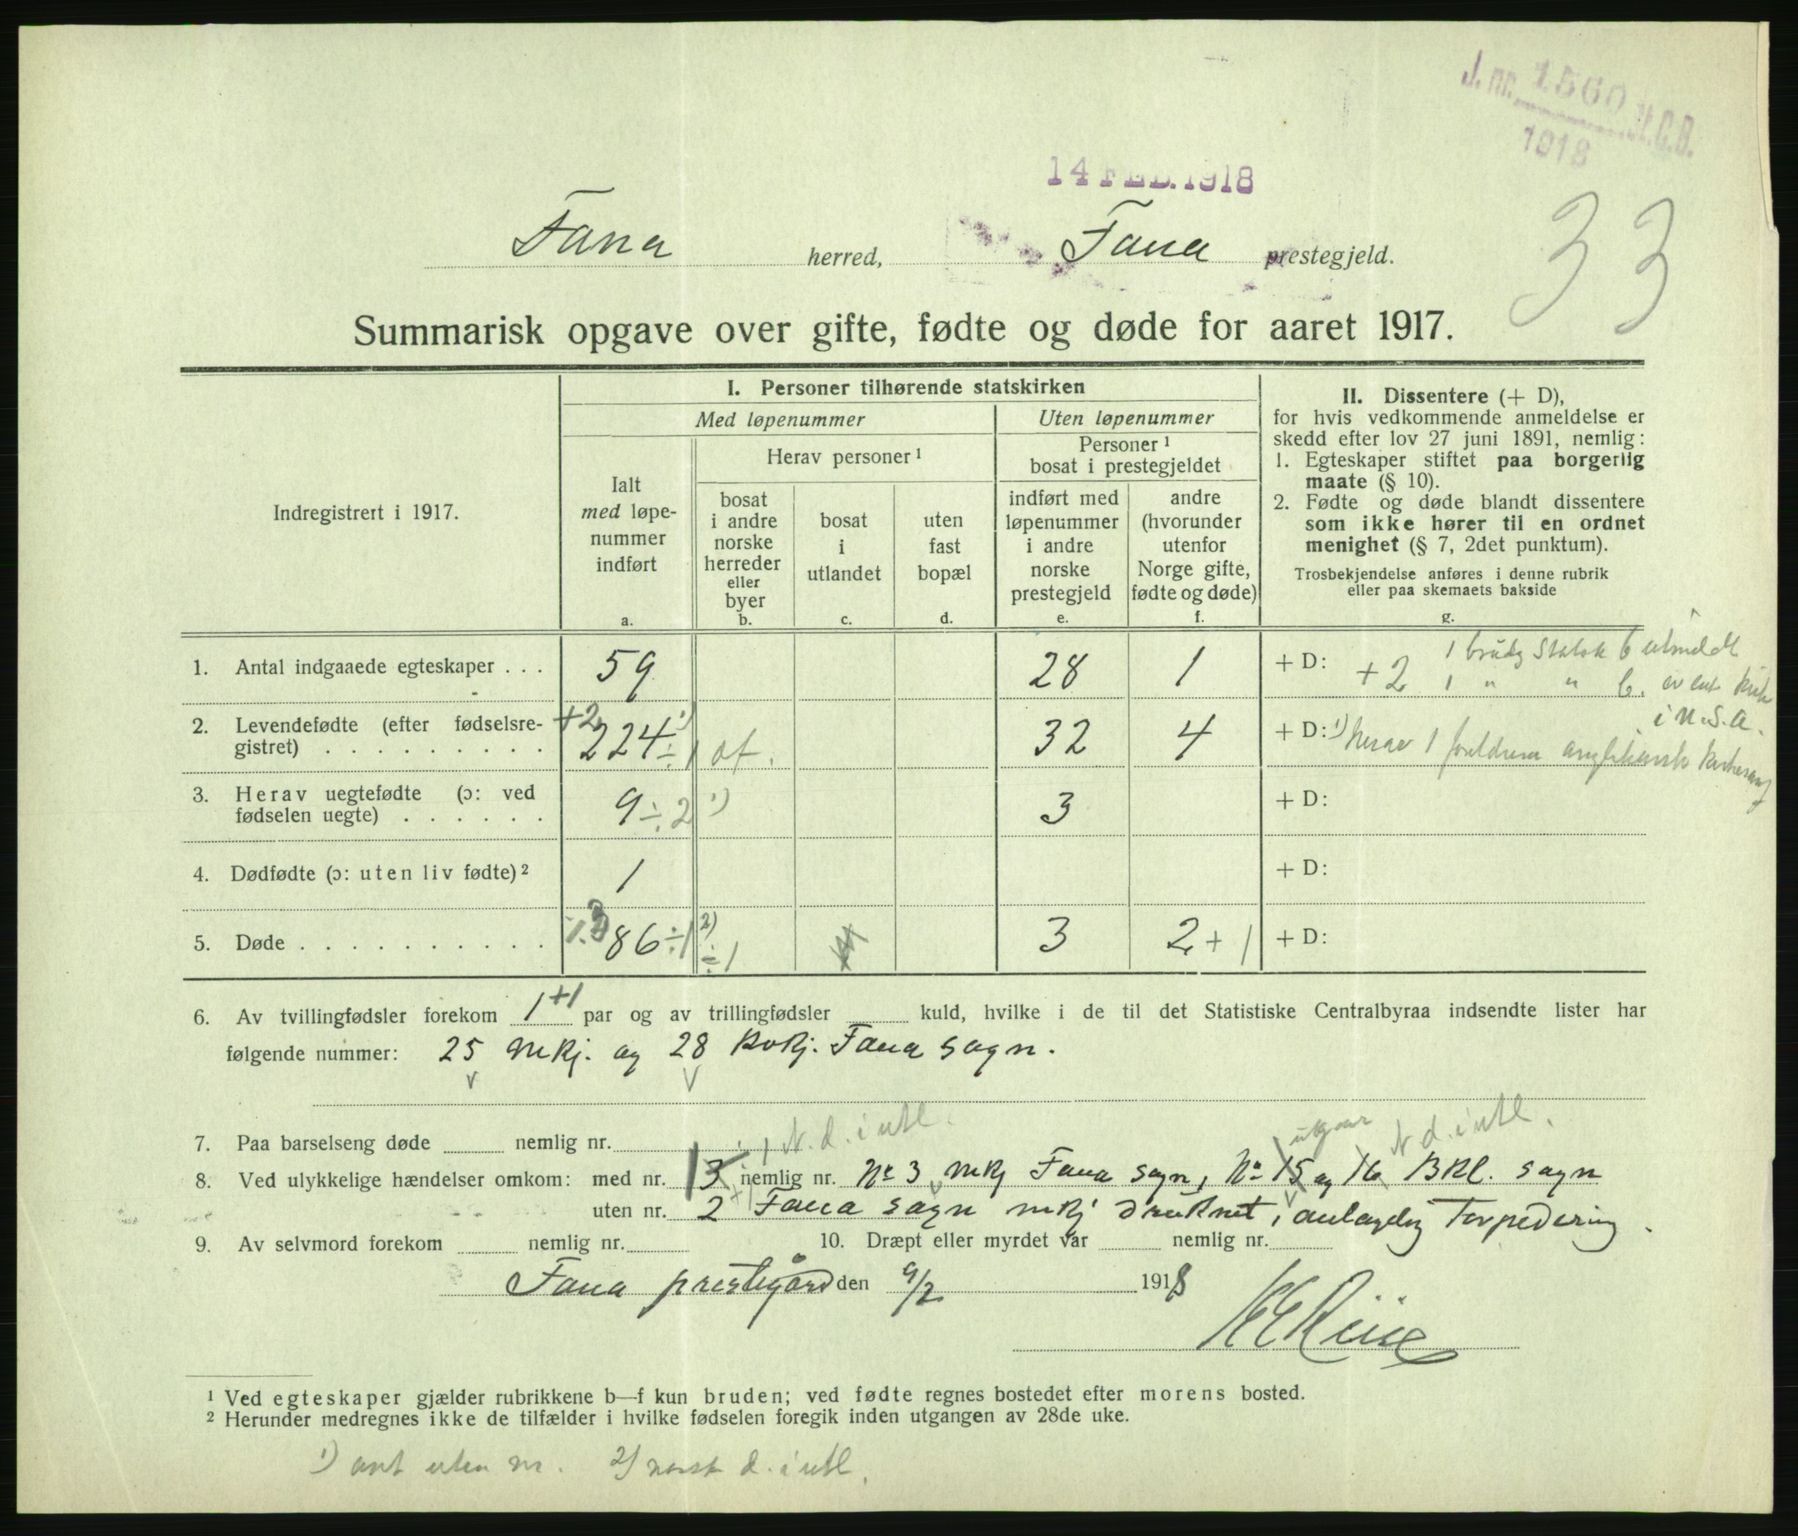 J. nr. 1560 S.C.B.
1918
14 FEB. 1918
33
Fana herred, Fana prestegjeld.
Summarisk opgave over gifte, fødte og døde for aaret 1917.
Indregistrert i 1917.
I. Personer tilhørende statskirken
Med løpenummer
Uten løpenummer
Ialt
med løpe-
nummer
indført
a.
Herav personer ¹
bosat
i andre
norske
herreder
eller
byer
b.
bosat
i
utlandet
c.
uten
fast
bopæl
d.
Personer ¹
bosat i prestegjeldet
indført med
løpenummer
i andre
norske
prestegjeld
e.
andre
(hvorunder
utenfor
Norge gifte,
fødte og døde)
f.
II. Dissentere (+ D),
for hvis vedkommende anmeldelse er
skedd efter lov 27 juni 1891, nemlig:
1. Egteskaper stiftet paa borgerlig
maate (§ 10).
2. Fødte og døde blandt dissentere
som ikke hører til en ordnet
menighet (§ 7, 2det punktum).
Trosbekjendelse anføres i denne rubrik
eller paa skemaets bakside
g.
1. Antal indgaaede egteskaper . . . 59 28 1 + D: +2 1 brudg Statsk b utmeldt
1 " " b. ev. luth kirke
i U.S.A.
2. Levendefødte (efter fødselsre-
gistret) . . . . . . . . . +2 224 ¹) ÷1 of. 32 4 + D: ¹) herav 1 foreldrene anglikansk
3. Herav uegtefødte (ɔ: ved
fødselen uegte) . . . . . . 9 ÷2 ¹) 3 + D:
4. Dødfødte (ɔ: uten liv fødte) ² 1 + D:
5. Døde . . . . . . . . . . 86 ÷1 ²) ÷1 3 2 + 1 + D:
6. Av tvillingfødsler forekom 1 +1 par og av trillingfødsler kuld, hvilke i de til det Statistiske Centralbyraa indsendte lister har
følgende nummer: 25 mkj. og 28 kvkj. Fana sogn.
7. Paa barselseng døde nemlig nr. N. d. i utl. utgaar N d. i utl.
8. Ved ulykkelige hændelser omkom: med nr. 1 3 nemlig nr. No 3 mkj Fana sogn, No 15 og 16 Bkl. sogn
uten nr. 2 +1 Fana sogn mkj druknet, antagelig Torpedering.
9. Av selvmord forekom nemlig nr. 10. Dræpt eller myrdet var nemlig nr.
Fana prestegård den 9/2 1918
¹ Ved egteskaper gjælder rubrikkene b—f kun bruden; ved fødte regnes bostedet efter morens bosted.
² Herunder medregnes ikke de tilfælder i hvilke fødselen foregik inden utgangen av 28de uke.
¹) ant uten nr. 2) norsk d. i utl.